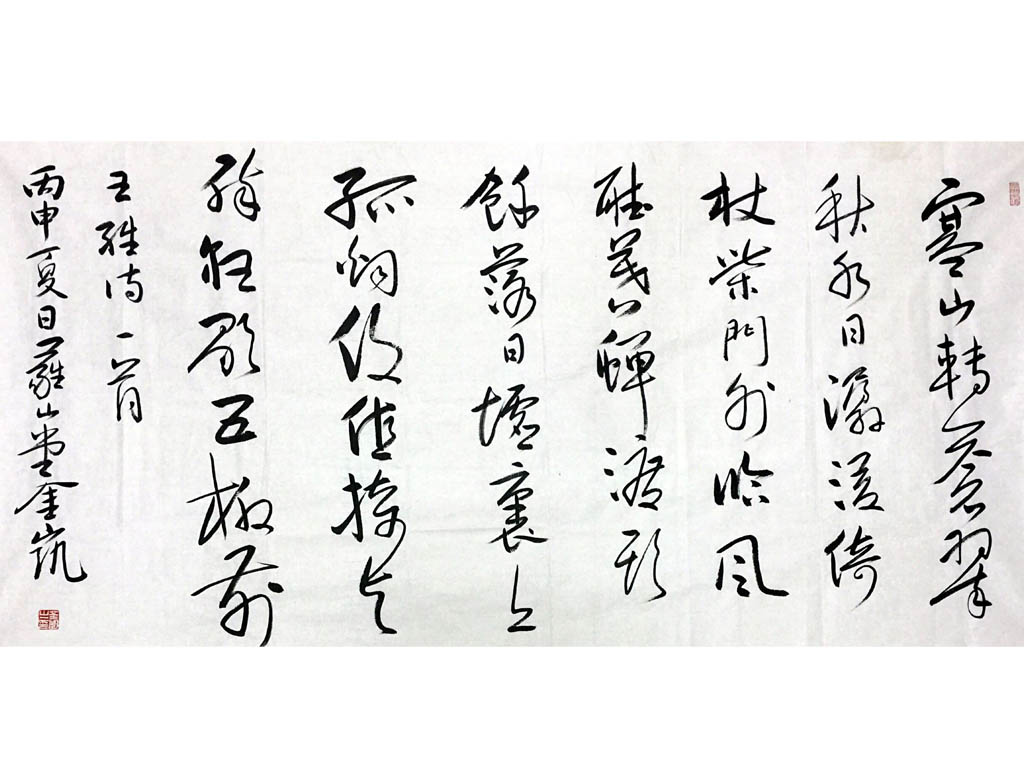 寒山轉蒼翠
秋水日潺湲倚
杖柴門外臨風
聽暮蟬渡頭
餘落日墟裏上
孤烟復值接輿
醉狂歌五柳前
王維詩一首
丙申夏日山堂金